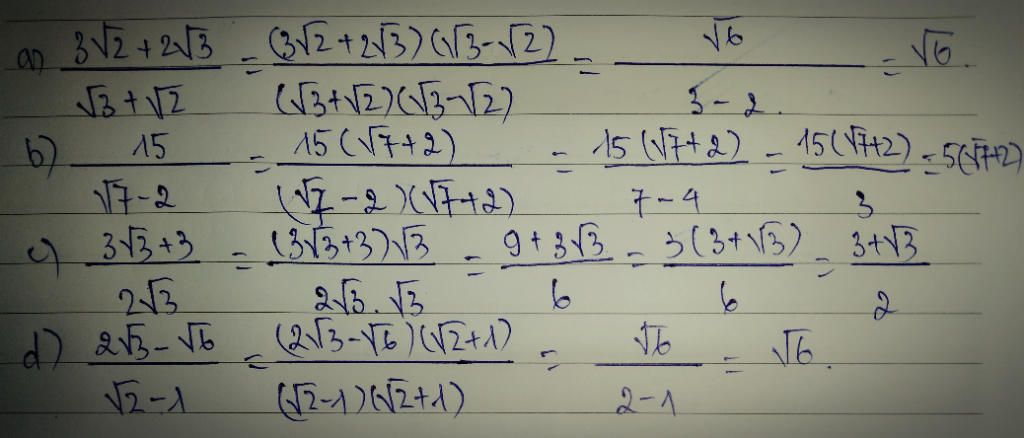 a) (3√2 + 2√3)/(√3 + √2) = ((3√2 + 2√3)(√3 - √2))/((√3 + √2)(√3 - √2)) = √6/(3 - 2) = √6.
b) 15/(√7 - 2) = (15(√7 + 2))/((√7 - 2)(√7 + 2)) = (15(√7 + 2))/(7 - 4) = (15(√7 + 2))/3 = 5(√7 + 2)
c) (3√3 + 3)/(2√3) = ((3√3 + 3)√3)/(2√3 . √3) = (9 + 3√3)/6 = (3(3 + √3))/6 = (3 + √3)/2
d) (2√3 - √6)/(√2 - 1) = ((2√3 - √6)(√2 + 1))/((√2 - 1)(√2 + 1)) = √6/(2 - 1) = √6.